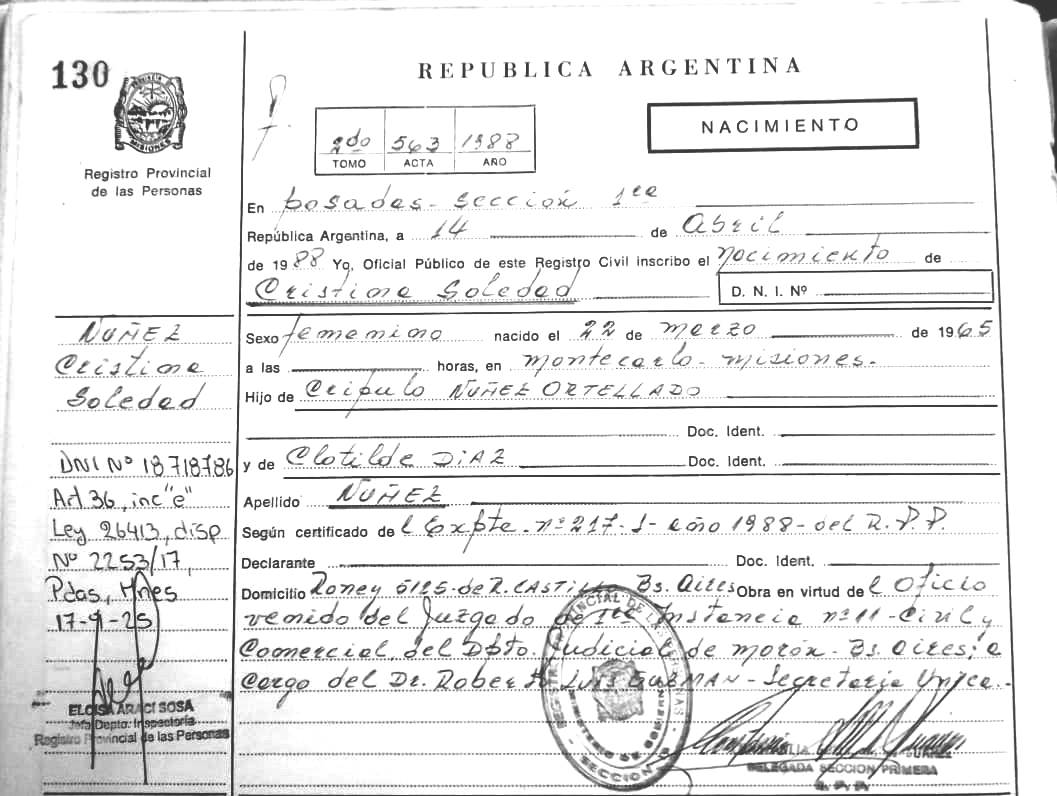 130
REPUBLICA ARGENTINA
MISIONES
Registro Provincial
de las Personas
2do 563 1988
TOMO ACTA AÑO
NACIMIENTO
En Posadas - Sección 1ra
República Argentina, a 14 de Abril
de 1988 Yo, Oficial Público de este Registro Civil inscribo el Nacimiento de
Cristina Soledad D. N. I. Nº
Sexo femenino nacido el 22 de marzo de 1965
a las horas, en montecarlo - misiones.-
Hijo de Cripulo NUÑEZ ORTELLADO
Doc. Ident.
y de Clotilde DIAZ Doc. Ident.
Apellido NUÑEZ
Según certificado del Expte. nº 217-J- año 1988- del R.P.P.
Declarante Doc. Ident.
Domicilio Roney 6125- de R. CASTILLO Bs. Aires Obra en virtud del Oficio
venido del Juzgado de 1ra Instancia nº 11 - Civil y
Comercial, del Dpto. Judicial de Morón - Bs. Aires; a
Cargo del Dr. Roberto LUIS GUZMAN - Secretaria Unica.-
NUÑEZ
Cristina
Soledad
DNI Nº 18718786
Art 36, inc "e"
Ley 26413, disp
Nº 2253/17,
Pdas, Mnes
17-9-25
ELOISA ARACI SOSA
Jefa Depto. Inspectoria
Registro Provincial de las Personas
MINISTERIO DE GOBIERNO
SECCION
DELEGADA SECCION PRIMERA